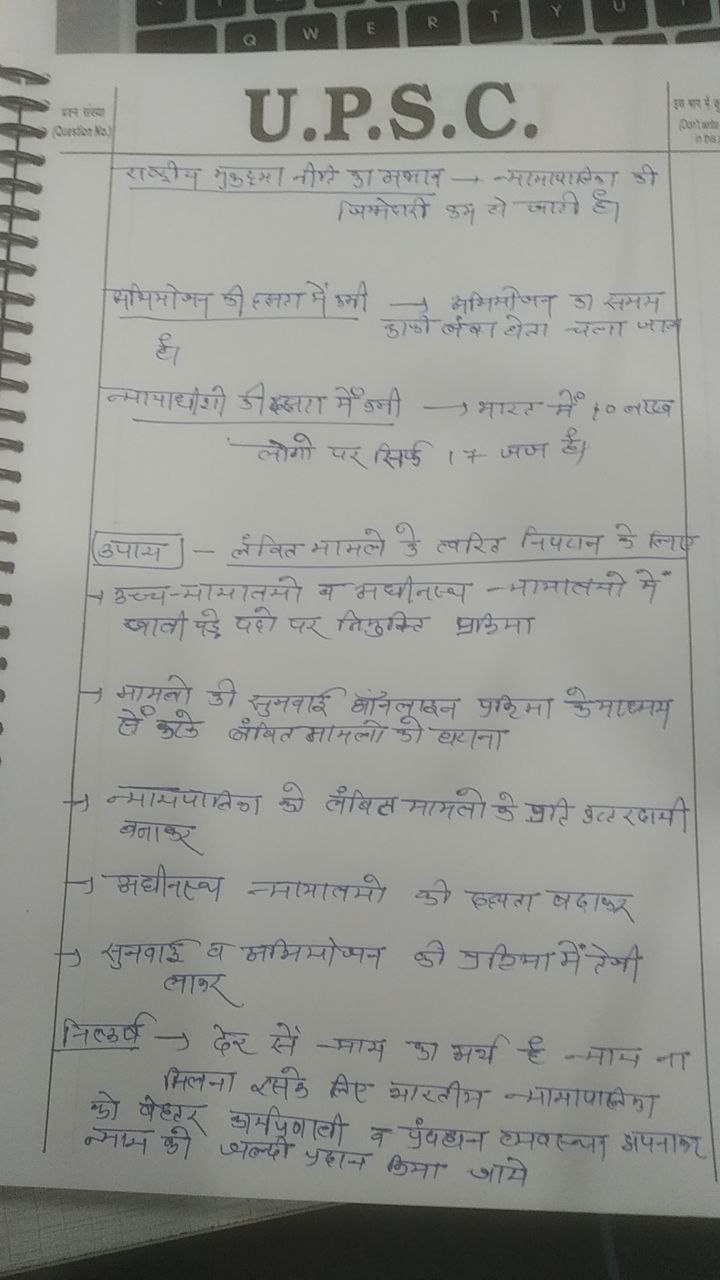 Q W E R T Y U
प्रश्न संख्या
(Question No.)
U.P.S.C.
इस भाग में कु
(Don't write
in this
राष्ट्रीय मुकदमा नीति का अभाव → न्यायापालिका की
जिम्मेदारी कम हो जाती है।
अभियोजन की दक्षता में कमी → अभियोजन का समय
काफी लंबा होता चला जाता
है।
न्यायाधीशो की दक्षता में कमी → भारत में 10 लाख
लोगो पर सिर्फ 17 जज है।
उपाय – लंबित मामले के त्वरित निपटान के लिए
→ उच्च न्यायालयो व अधीनस्थ न्यायालयो में
खाली पड़े पदो पर नियुक्ति प्रक्रिया
→ मामलो की सुनवाई ऑनलाइन प्रक्रिया के माध्यम
से करके लंबित मामलो को घटाना
→ न्यायपालिका को लंबित मामलो के प्रति उत्तरदायी
बनाकर
→ अधीनस्थ न्यायालयो की दक्षता बढाकर
→ सुनवाई व अभियोजन की प्रक्रिया में तेजी
लाकर
निष्कर्ष → देर से न्याय का अर्थ है न्याय ना
मिलना इसके लिए भारतीय न्यायापालिका
को बेहतर कार्यप्रणाली व प्रंबधन व्यवस्था अपनाकर
न्याय को जल्दी प्रदान किया जाये